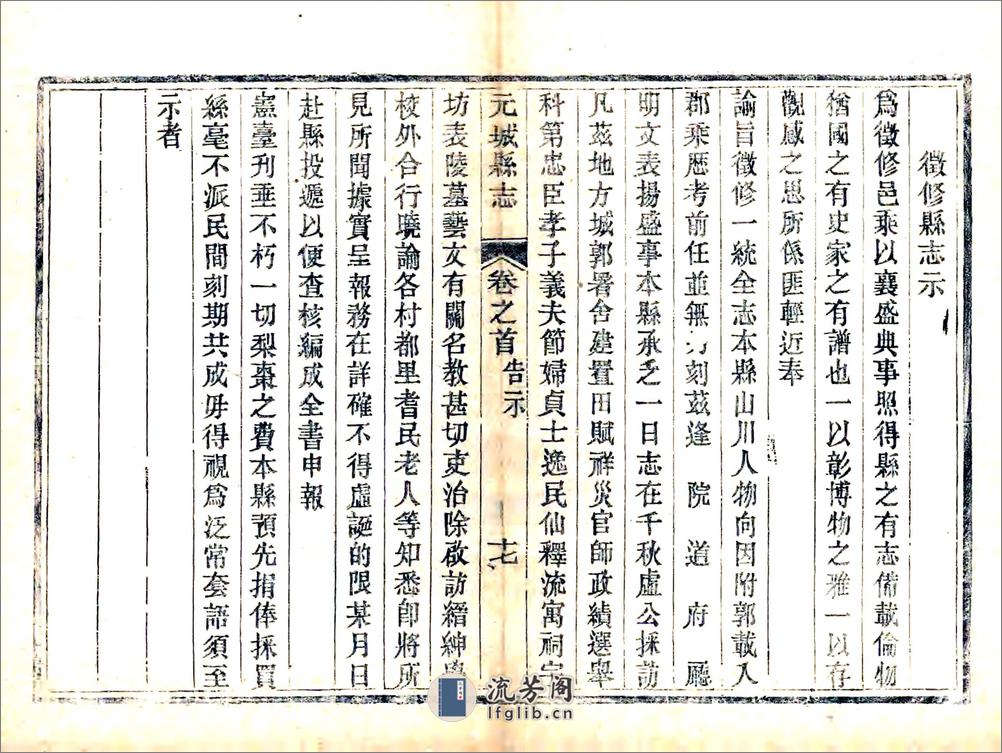 徵修縣志示
為徵修邑乘以襄盛典事照得縣之有志備載倫物
猶國之有史家之有譜也一以彰博物之雅一以存
觀感之思所係匪輕近奉
諭旨徵修一統全志本縣山川人物向因附郭載入
郡乘歷考前任並無刻茲逢 院 道 府 廳
明文表揚盛事本縣承乏一日志在千秋虛公採訪
凡茲地方城郭署舍建置田賦祥災官師政績選舉
科第忠臣孝子義夫節婦貞士逸民仙釋流寓祠宇
元城縣志 卷之首 告示 十七
坊表陵墓藝文有關名教甚切吏治除啟訪縉紳學
校外合行曉諭各村都里耆民老人等知悉卽將所
見所聞據實呈報務在詳確不得虛誕的限某月日
赴縣投遞以便查核編成全書申報
憲臺刊垂不朽一切梨棗之費本縣預先捐俸採買
絲毫不派民間刻期共成毋得視為泛常套語須至
示者
流芳阁
lfglib.cn